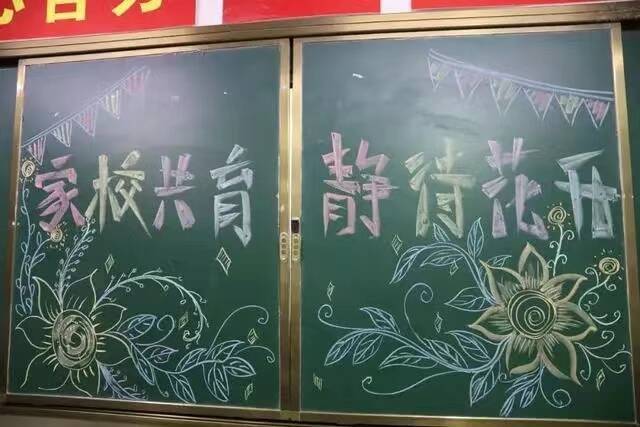 家校共育 静待花开